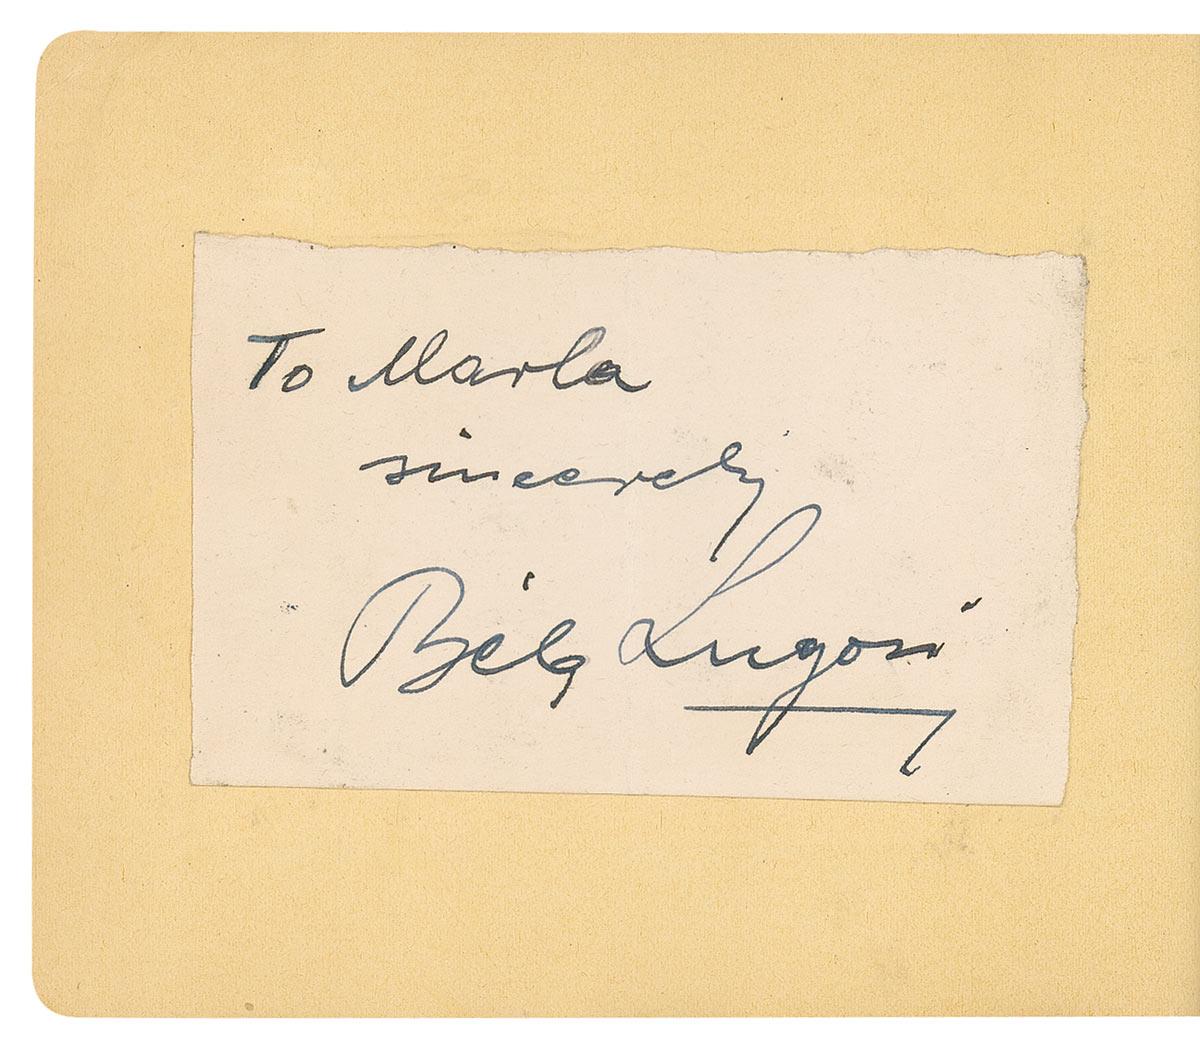 To Marla
sincerely
Béla Lugosi